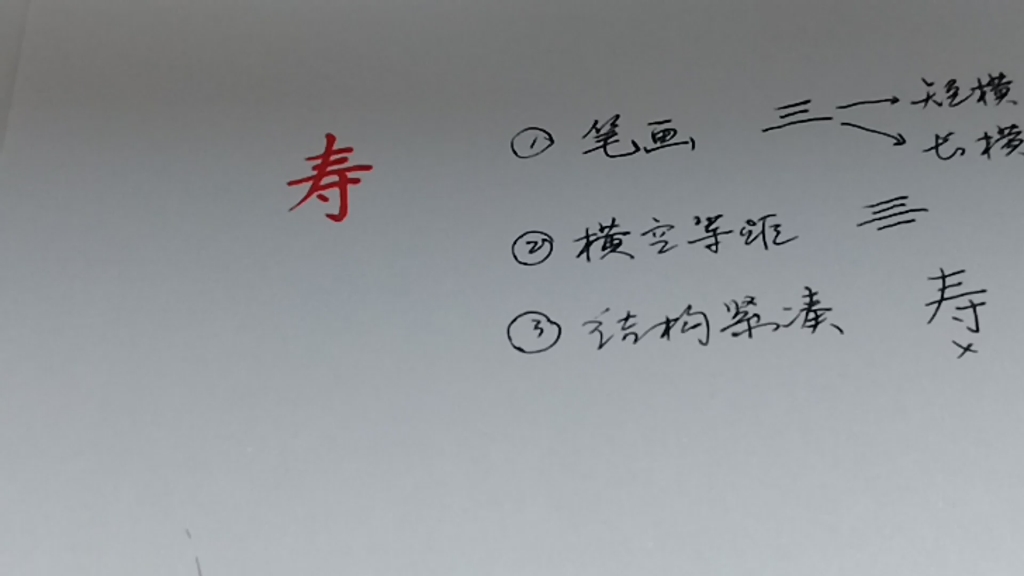 寿
① 笔画 三 短横
长横
② 横空等距 三
③ 结构紧凑 寿
×